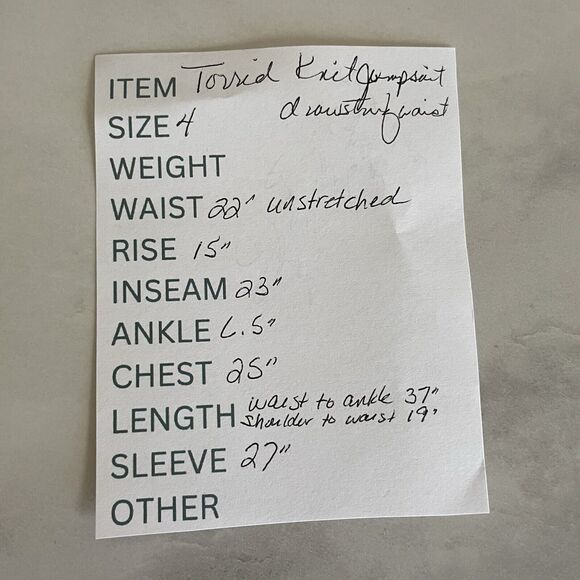 ITEM Torrid Knit Jumpsuit
drawstring waist
SIZE 4
WEIGHT
WAIST 22" unstretched
RISE 15"
INSEAM 23"
ANKLE 6.5"
CHEST 25"
LENGTH waist to ankle 37"
shoulder to waist 19"
SLEEVE 27"
OTHER